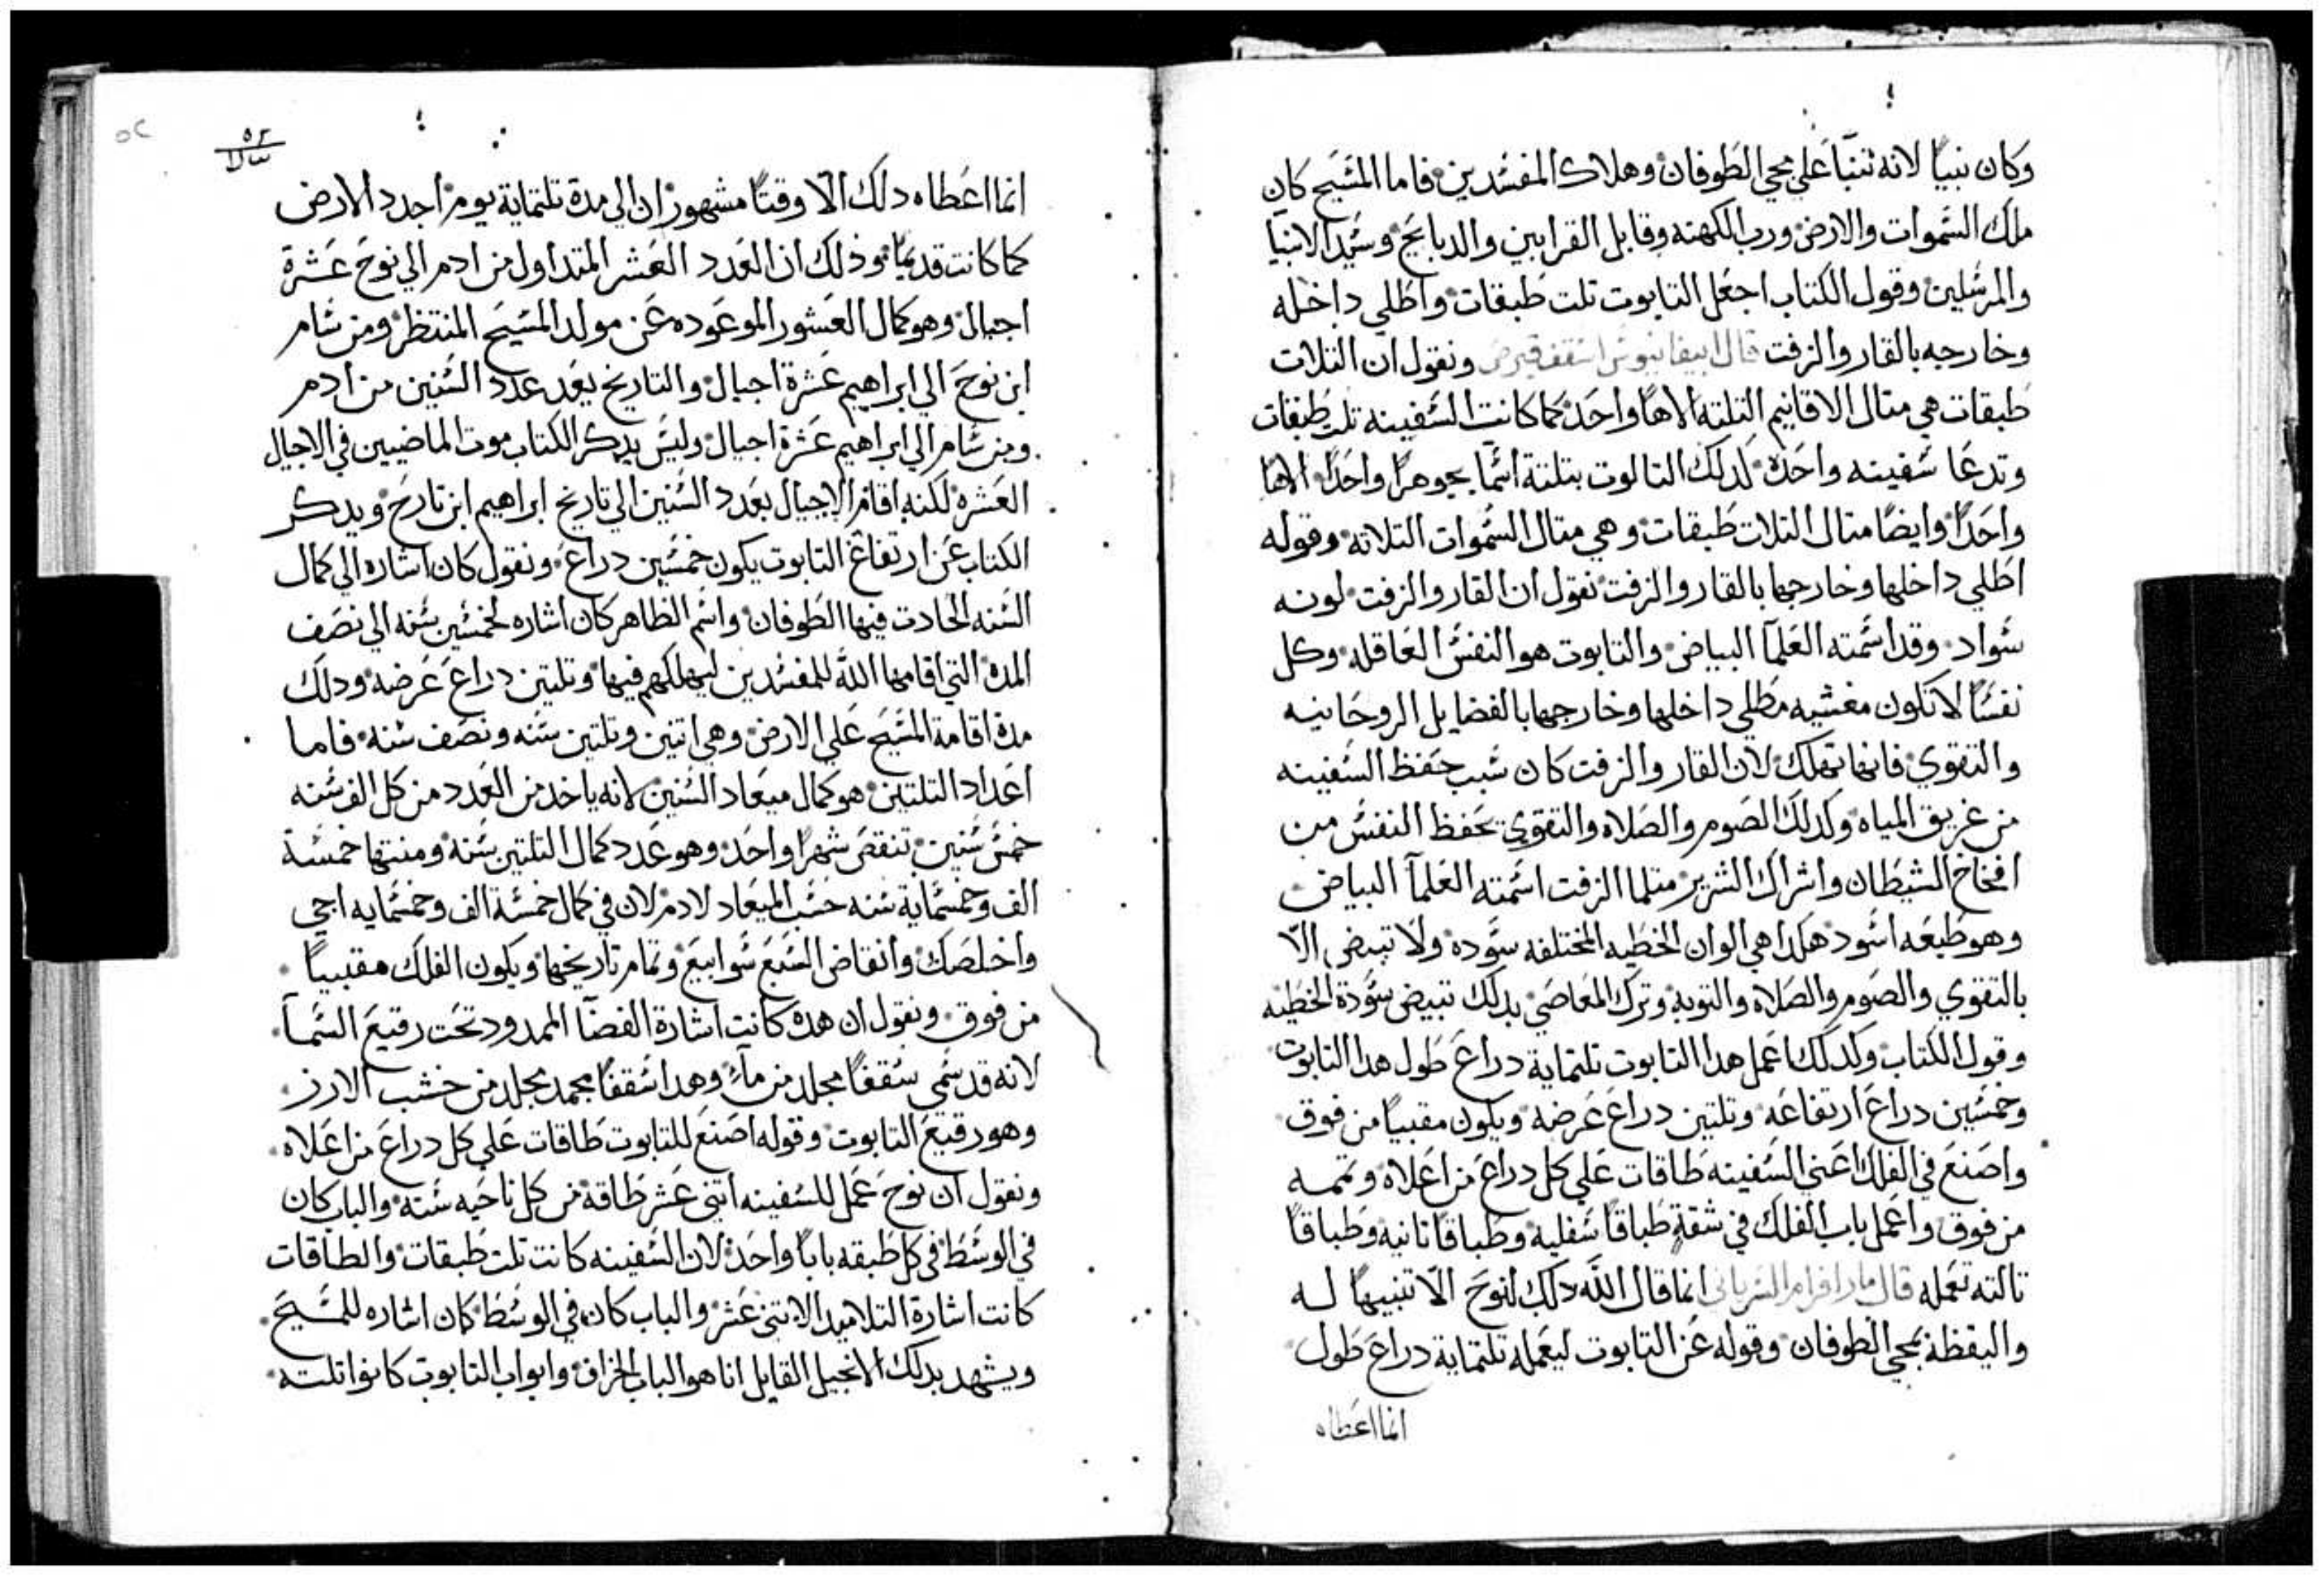 وكان نبيًا لانه تنبّا علي مجي الطوفان وهلاك المفسدين فاما المسيح كان
ملك السموات والارض ورب الكهنه وقابل القرابين والدبايح وسيد الانبيا
والمرسلين وقول الكتاب اجعل التابوت تلت طبقات واطلي داخله
وخارجه بالقار والزفت قال ابيفانيوس اسقف قبرص ونقول ان التلات
طبقات هي متال الاقانيم التلته الاهًا واحد كما كانت السفينه تلت طبقات
وتدعا سفينه واحده كدلك التالوت بتلتة اسما بجوهرًا واحدًا الاهًا
واحدًا وايضًا متال التلات طبقات وهي متال السموات التلاته وقوله
اطلي داخلها وخارجها بالقار والزفت نقول ان القار والزفت لونه
سواد وقد اسمته العلمآ البياض والتابوت هو النفس العاقله وكل
نفسًا لا تكون مغشيه مطلي داخلها وخارجها بالفضايل الروحانيه
والتقوي فانها تهلك لان القار والزفت كان سبب حفظ السفينه
من غريق المياه وكدلك الصوم والصلاه والتقوي تحفظ النفس من
افخاخ الشيطان واشراك الشرير متلما الزفت اسمته العلمآ البياض
وهو طبعه اسود هكدا هي الوان الخطيه المختلفه سوده ولا تبيض الّا
بالتقوي والصوم والصلاه والتوبه وترك المعاصي بدلك تبيض سودة الخطيه
وقول الكتاب وكدلك اعمل هدا التابوت تلتماية دراع طول هدا التابوت
وخمسين دراع ارتفاعه وتلتين دراع عرضه ويكون مقبيًا من فوق
واصنع في الفلك اعني السفينه طاقات علي كل دراع من اعلاه وتممه
من فوق واعمل باب الفلك في شقة طباقًا سفلية وطباقًا تانيه وطباقًا
تالته تعمله قال مار افرام السرياني انما قال الله دلك لنوح الّا تنبيهًا له
واليقظة بمجي الطوفان وقوله عن التابوت ليعمله تلتماية دراع طول
انما اعطاه
٥٢
انما اعطاه دلك الّا وقتًا مشهور ان الي مدة تلتماية يوم اجدد الارض
كما كانت قديمًا وذلك ان العدد العشر المتداول من ادم الي نوح عشرة
اجيال وهو كمال العشور الموعوده عن مولد المسيح المنتظر ومن سام
ابن نوح الي ابراهيم عشرة اجيال والتاريخ بعد عدد السنين من ادم
ومن سام الي ابراهيم عشرة اجيال وليس يدكر الكتاب موت الماضيين في الاجيال
العشره لكنه اقام الاجيال بعدد السنين الي تاريخ ابراهيم ابن تارح ويدكر
الكتاب عن ارتفاع التابوت يكون خمسين دراع ونقول كان اشاره الي كمال
السنه الحادت فيها الطوفان واسم الظاهر كان اشاره لخمسين سنه الي نصف
المده التي اقامها الله للمفسدين ليهلكهم فيها وتلتين دراع عرضه ودلك
مدة اقامة المسيح علي الارض وهي اتنين وتلتين سنه ونصف سنه فاما
اعداد التلتين هو كمال ميعاد السنين لانه ياخد من العدد من كل الف سنه
خمس سنين تنقص شهرًا واحد وهو عدد كمال التلتين سنه ومنتها خمسة
الف وخمسماية سنه حسب الميعاد لادم لان في كمال خمسة الف وخمسمايه اجي
واخلصك وانقاض السبع سوابيع وتمام تاريخها ويكون الفلك مقبيًا
من فوق ونقول ان هده كانت اشارة الفضآ الممدود تحت رقيع السمآ
لانه قد سمي سقفًا مجلد من مآءٍ وهدا سقفًا مجمد مجلد من خشب الارز
وهو رقيع التابوت وقوله اصنع للتابوت طاقات علي كل دراع من اعلاه
ونقول ان نوح عمل للسفينه اتني عشر طاقة من كل ناحيه سته والباب كان
في الوسط في كل طبقه بابًا واحد لان السفينه كانت تلت طبقات والطاقات
كانت اشارة التلاميد الاتني عشر والباب كان في الوسط كان اشاره للمسيح
ويشهد بدلك الانجيل القايل انا هو الباب الخراف وابواب التابوت كانوا تلته